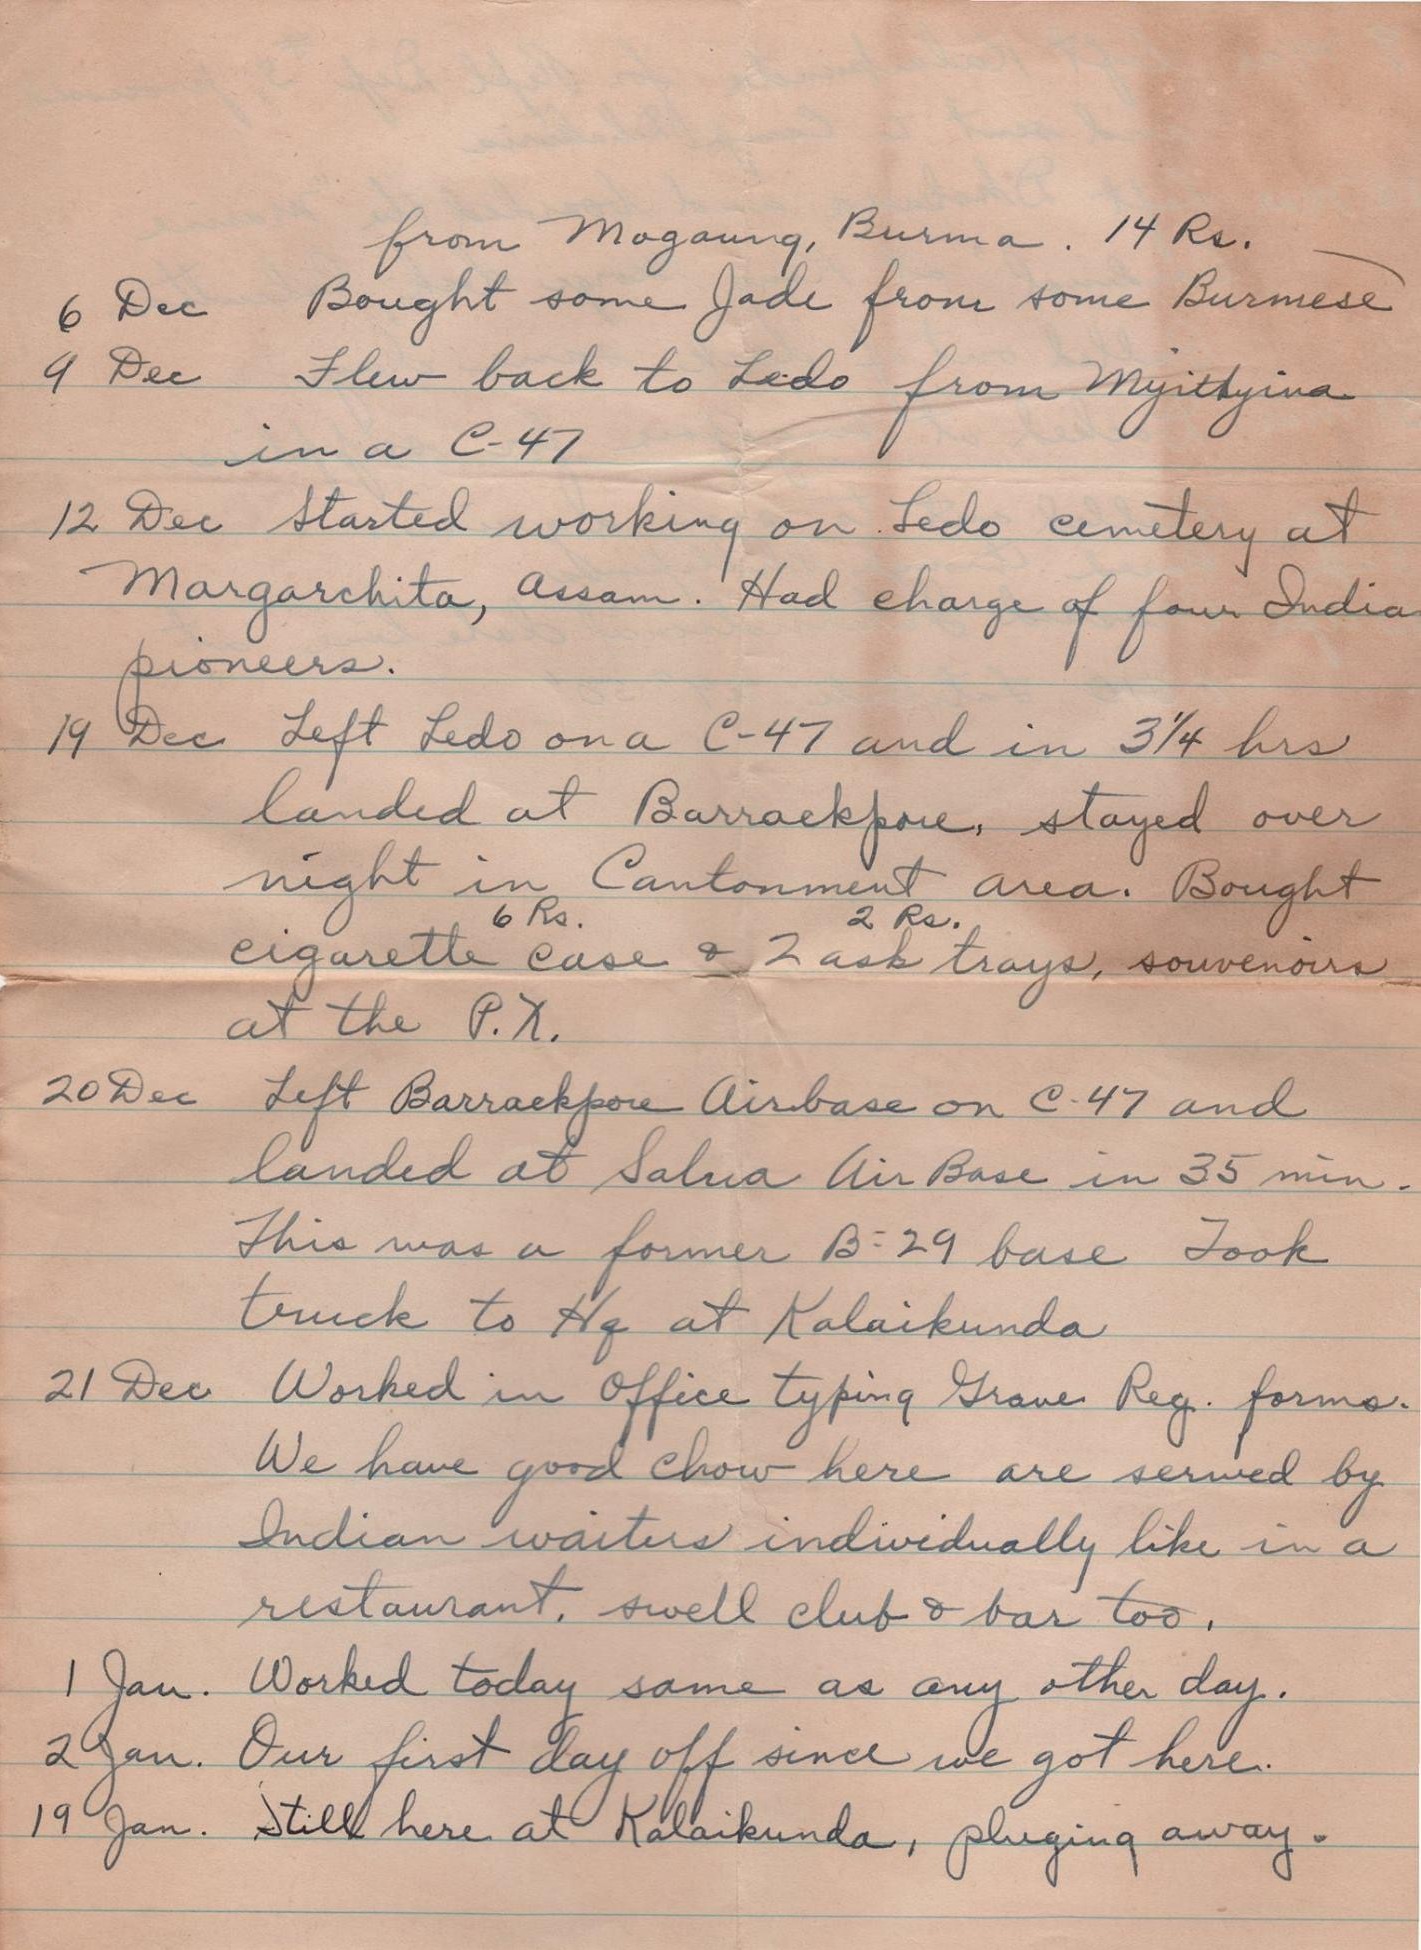 from Mogaung, Burma. 14 Rs.
6 Dec Bought some Jade from some Burmese
9 Dec Flew back to Ledo from Myittyina
in a C-47
12 Dec Started working on Ledo cemetery at
Margarchita, Assam. Had charge of four India
pioneers.
19 Dec Left Ledo on a C-47 and in 3 1/4 hrs
landed at Barrackpore, stayed over
night in Cantonment area. Bought
6 Rs. 2 Rs.
cigarette case & 2 ask trays, souvenoirs
at the P.X.
20 Dec Left Barrackpore Airbase on C-47 and
landed at Salua Air Base in 35 min.
This was a former B-29 base Took
truck to Hq at Kalaikunda
21 Dec Worked in Office typing Grave Reg. forms.
We have good chow here are served by
Indian waiters individually like in a
restaurant, swell club & bar too.
1 Jan. Worked today same as any other day.
2 Jan. Our first day off since we got here.
19 Jan. Still here at Kalaikunda, pluging away.